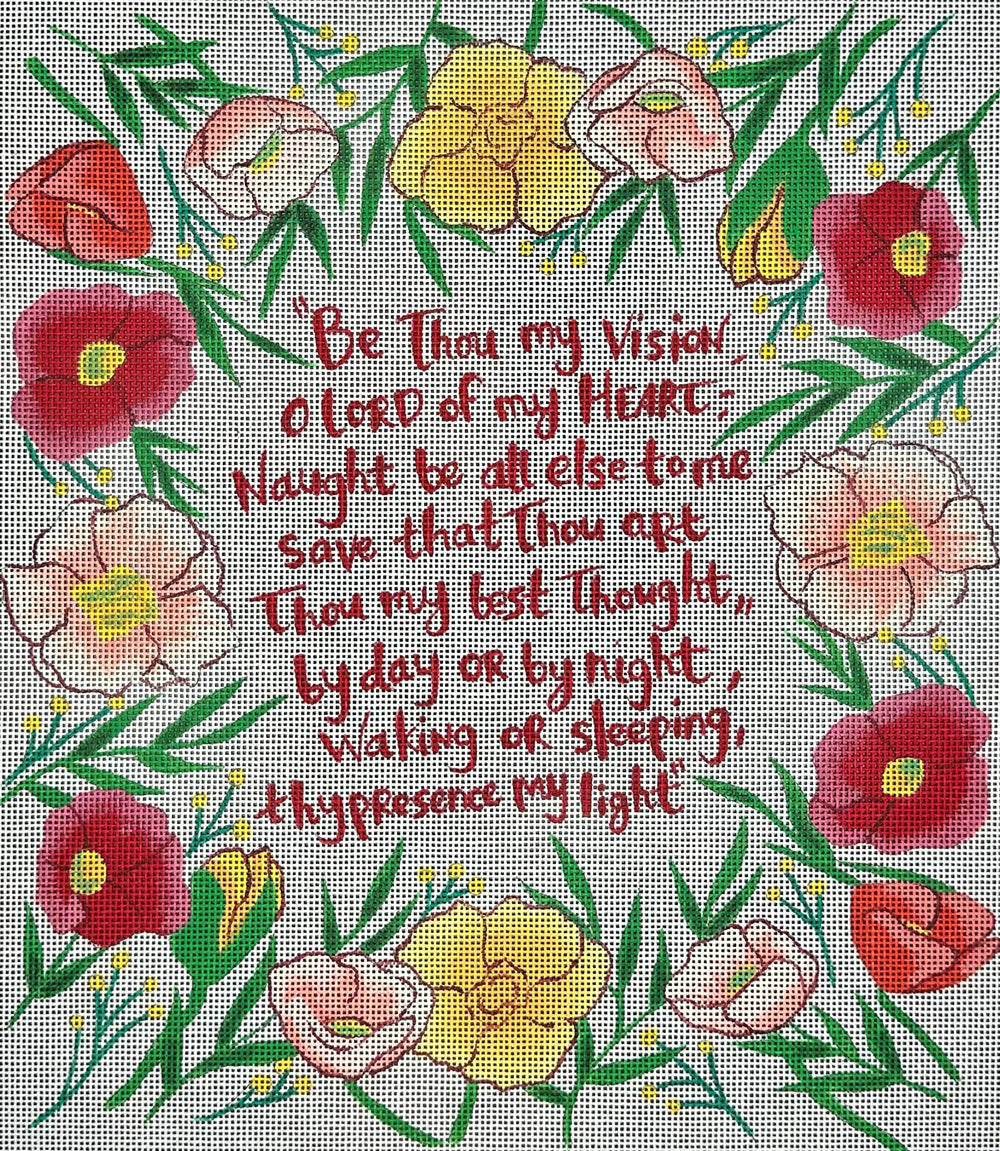 "Be Thou my Vision,
O LORD of my HEART:
Naught be all else to me
save that Thou art
Thou my best Thought,,
by day OR by night,
Waking OR sleeping,
thy presence my light"